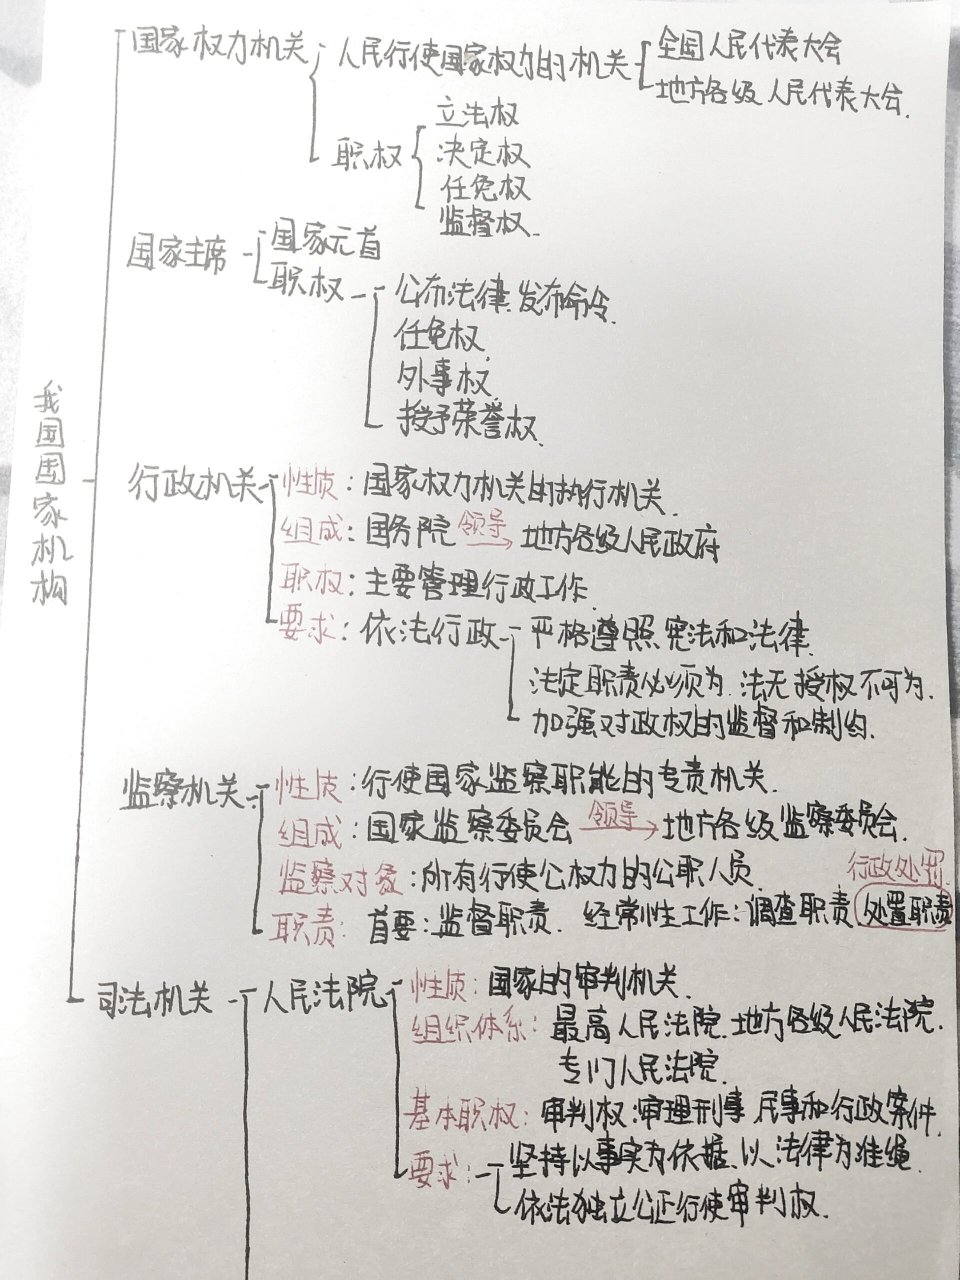 国家权力机关 人民行使国家权力的机关 全国人民代表大会
地方各级人民代表大会.
职权 立法权
决定权
任免权
监督权.
国家主席 国家元首
职权 公布法律、发布命令.
任免权.
外事权.
授予荣誉权.
我国国家机构
行政机关 性质：国家权力机关的执行机关.
组成：国务院 领导 地方各级人民政府
职权：主要管理行政工作.
要求：依法行政 严格遵照宪法和法律.
法定职责必须为.法无授权不可为.
加强对政权的监督和制约.
监察机关 性质：行使国家监察职能的专责机关.
组成：国家监察委员会 领导 地方各级监察委员会.
监察对象：所有行使公权力的公职人员.
行政处罚.
职责：首要：监督职责. 经常性工作：调查职责 处置职责
司法机关 人民法院 性质：国家的审判机关.
组织体系：最高人民法院.地方各级人民法院.
专门人民法院.
基本职权：审判权：审理刑事、民事和行政案件.
要求：坚持以事实为依据、以法律为准绳.
依法独立公正行使审判权.